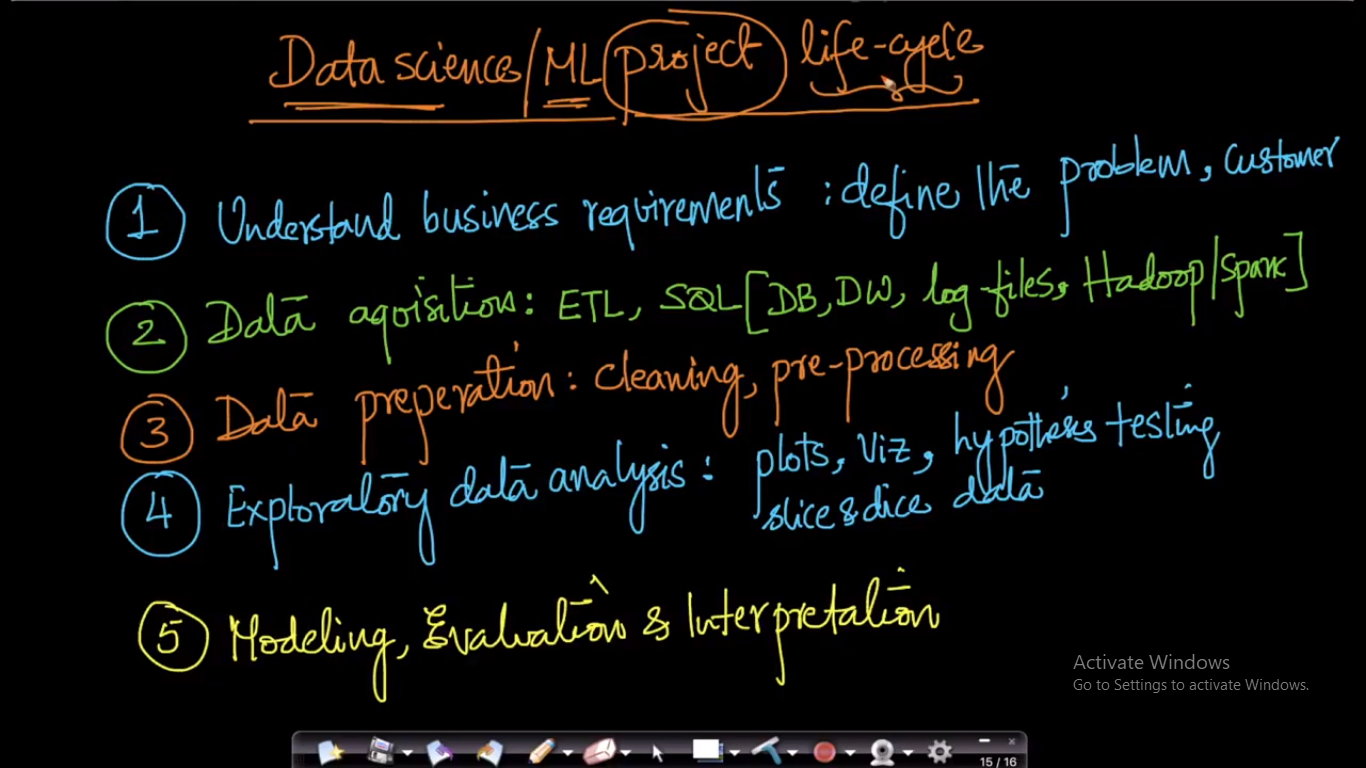 Data science/ML project life-cycle
1 Understand business requirements : define the problem, customer
2 Data aqoisition : ETL, SQL [DB, DW, log-files, Hadoop/Spark]
3 Data preperation : cleaning, pre-processing
4 Exploratory data analysis : plots, Viz, hypothesis testing
slice & dice data
5 Modeling, Evaluation & Interpretation
Activate Windows
Go to Settings to activate Windows.
15 / 16